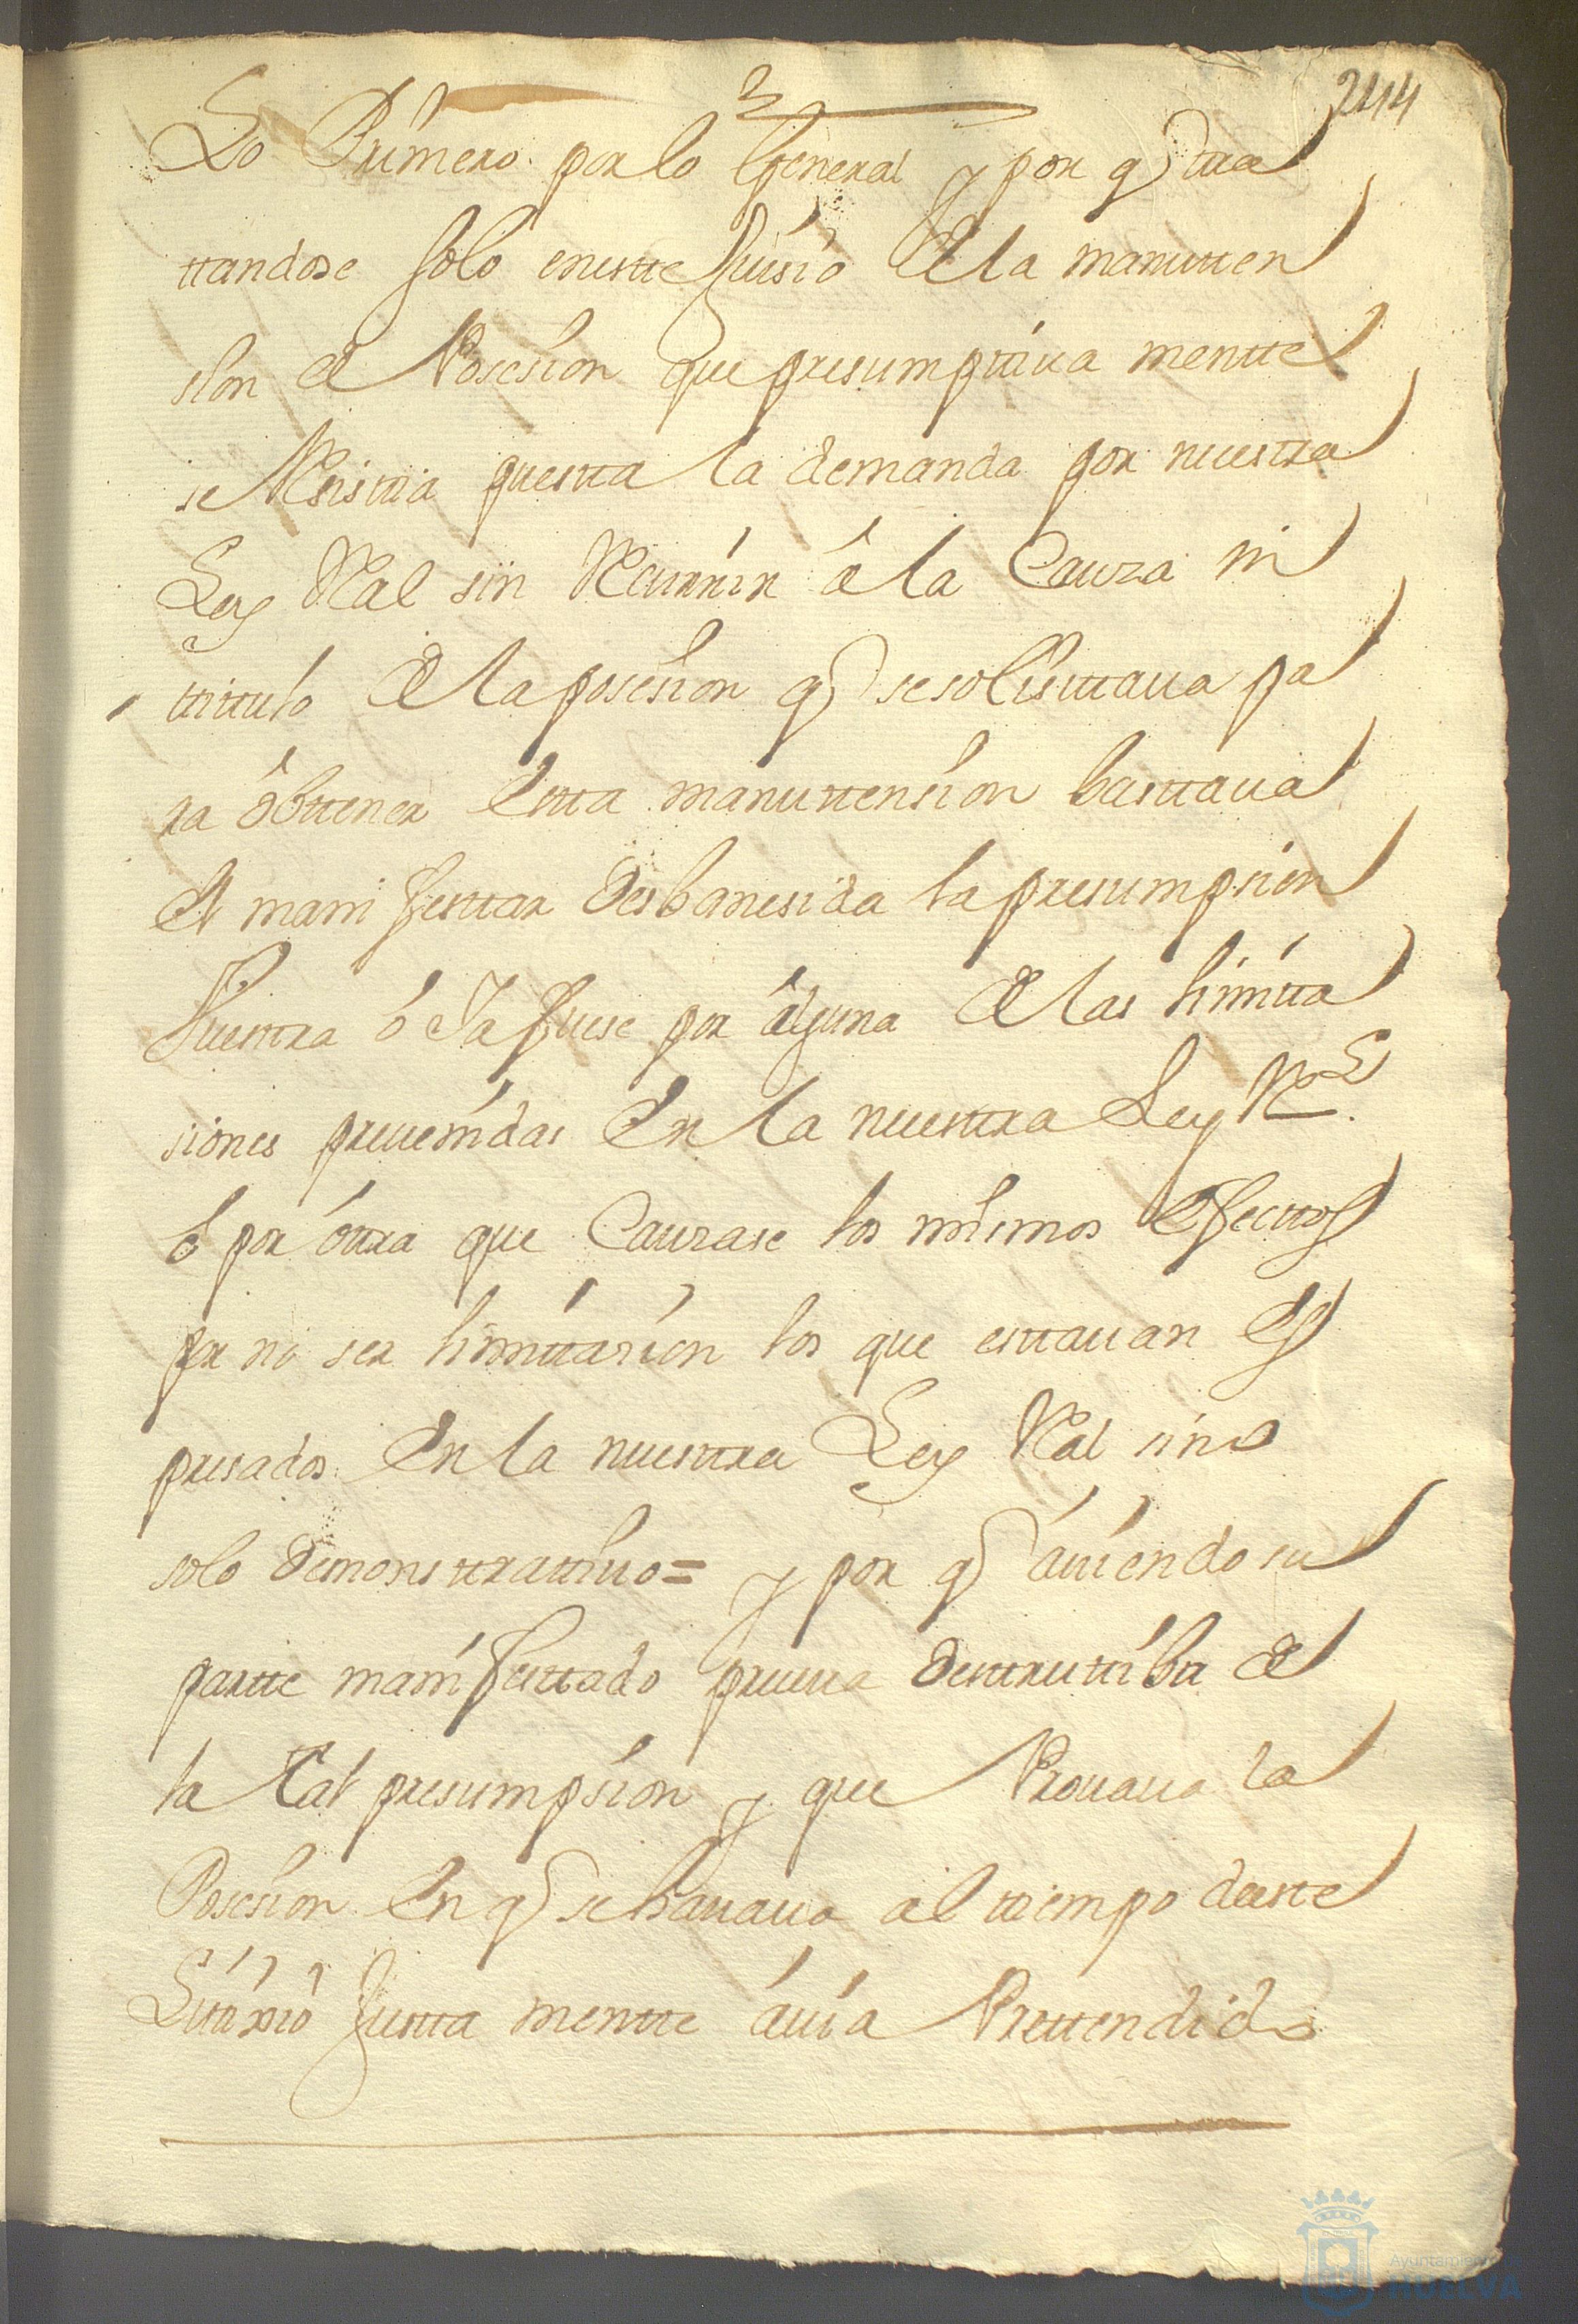 244
Lo Primero por lo General y por q tra
ttandose solo en estte Juisio de la manutten
sion de Posesion que presumptiva mentte
se
puesta la demanda por nuestra
Ley Real sin Recurrir â la Cauza ni
tittulo de la posesion q se solisittava pa
ra ôbttener Estta manuttension basttava
el mani festtar desbanesida la presumpsion
Nuestra ô Ya fuese por âlguna de las limitta
siones prevenidas En la nuestra Ley Rl.
ô por ôttra que Cauzase los mismos Efecttos
pr no ser limittasion los que esttavan Es
presados En la nuesttra Ley Real sino
solo Demonsttrattivo = y por q áviendo su
partte manifesttado prueva Desttruttiba de
la Tal presumpsion y que Provava la
Posesion En q se hayava al tiempo deeste
Littixio Justta mentte ávia Prettendido
Ayuntamiento de
HUELVA